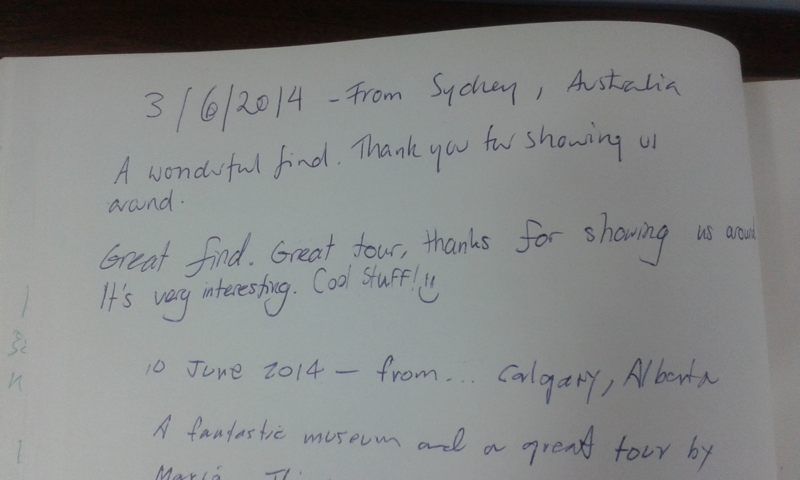 3/6/2014 - From Sydney, Australia
A wonderful find. Thank you for showing us
around.
Great find. Great tour, thanks for showing us around
It's very interesting. Cool stuff! :)
10 June 2014 - from... Calgary, Alberta
A fantastic museum and a great tour by